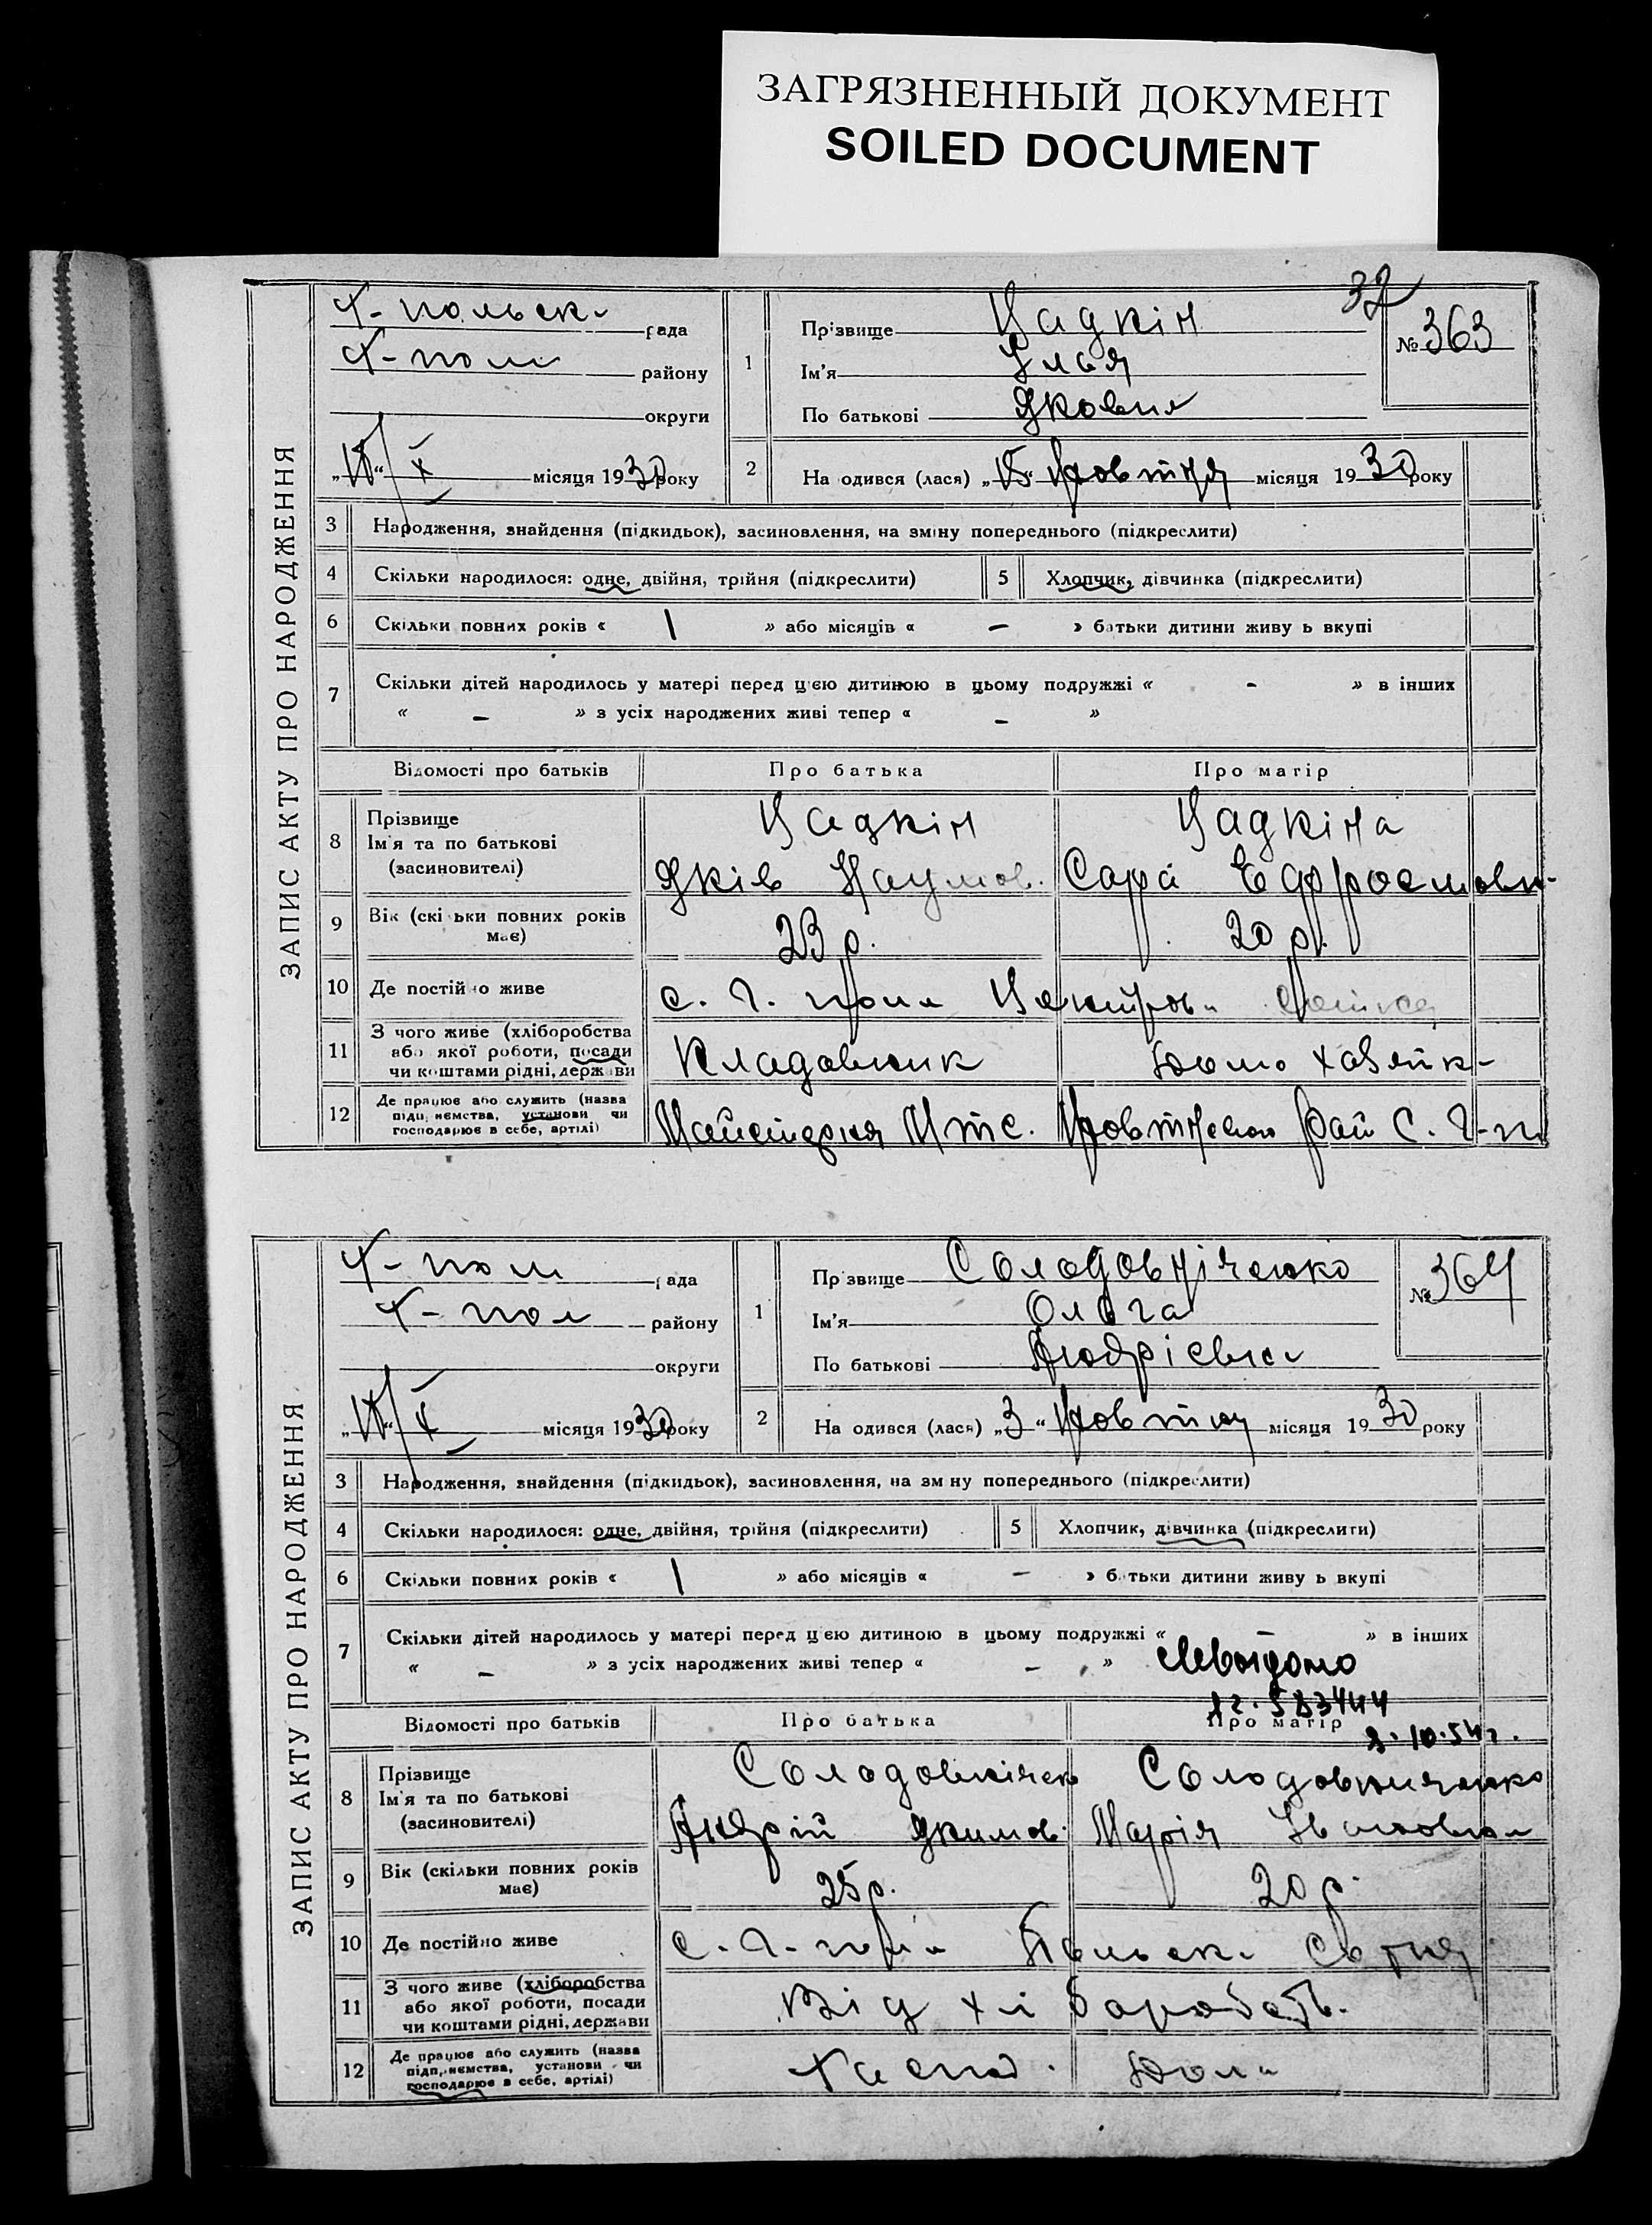 ЗАГРЯЗНЕННЫЙ ДОКУМЕНТ
SOILED DOCUMENT
32
ЗАПИС АКТУ ПРО НАРОДЖЕННЯ
рада
району
округи
„15“ X місяця 1930 року
1
Прізвище Цадкін
Ім'я Ілья
По батькові Якович
№ 363
2 На одився (лася) „15“ Жовтня місяця 1930 року
3 Народження, знайдення (підкидьок), засиновлення, на зміну попереднього (підкреслити)
4 Скільки народилося: одне, двійня, трійня (підкреслити)
5 Хлопчик, дівчинка (підкреслити)
6 Скільки повних років « 1 » або місяців « — » батьки дитини живу ь вкупі
7 Скільки дітей народилось у матері перед цією дитиною в цьому подружжі « - » в інших
« – » з усіх народжених живі тепер « – »
Відомості про батьків Про батька Про матір
8 Прізвище
Ім'я та по батькові
(засиновителі)
Цадкін Цадкіна
Яків Наумов. Сара
9 Вік (скі ьки повних років
має)
23 р. 20 р.
10 Де постійно живе
11 З чого живе (хліборобства
або якої роботи, посади
чи коштами рідні, держави
Кладовщик Домо хазяйк-
12 Де працює або служить (назва
підприємства, установи чи
господарює в себе, артілі)
ЗАПИС АКТУ ПРО НАРОДЖЕННЯ
рада
району
округи
„15“ X місяця 1930 року
1
Пр звище Солодовніченко
Ім'я Ольга
По батькові Андрієвна
№ 364
2 На одився (лася) „3“ Жовтня місяця 1930 року
3 Народження, знайдення (підкидьок), засиновлення, на зм ну попереднього (підкреслити)
4 Скільки народилося: одне, двійня, трійня (підкреслити)
5 Хлопчик, дівчинка (підкреслити)
6 Скільки повних років « 1 » або місяців « — » батьки дитини живу ь вкупі
7 Скільки дітей народилось у матері перед цією дитиною в цьому подружжі « – » в інших
« – » з усіх народжених живі тепер « – »
Відомості про батьків Про батька Про матір
8 Прізвище
Ім'я та по батькові
(засиновителі)
Солодовніченко Солодовниченко
Андрій Якимов. Марія Івановна
9 Вік (скільки повних років
має)
25 р. 20 р.
10 Де постійно живе
11 З чого живе (хліборобства
або якої роботи, посади
чи коштами рідні, держави
Від хліборобств.
12 Де працює або служить (назва
підприємства, установи чи
господарює в себе, артілі)